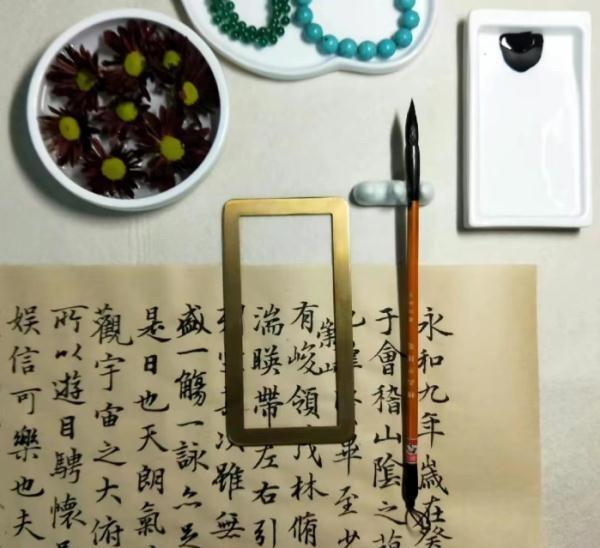 永和九年歲在癸
于會稽山陰之
也羣畢至少
有崇山峻領茂林脩
湍暎帶左右引
次雖無
盛一觴一詠亦足
是日也天朗氣
觀宇宙之大俯
所以遊目騁懷
娱信可樂也夫